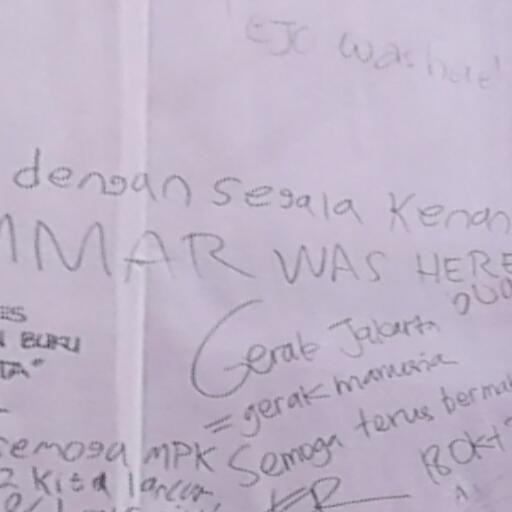 EJO was here!
dengan segala Kenan
MMAR WAS HERE
ES
BUKU
TA"
Gerak Jakarta
= gerak manusia
Semoga terus bermak
18 Okt
semoga MPK
2 Kita lancar